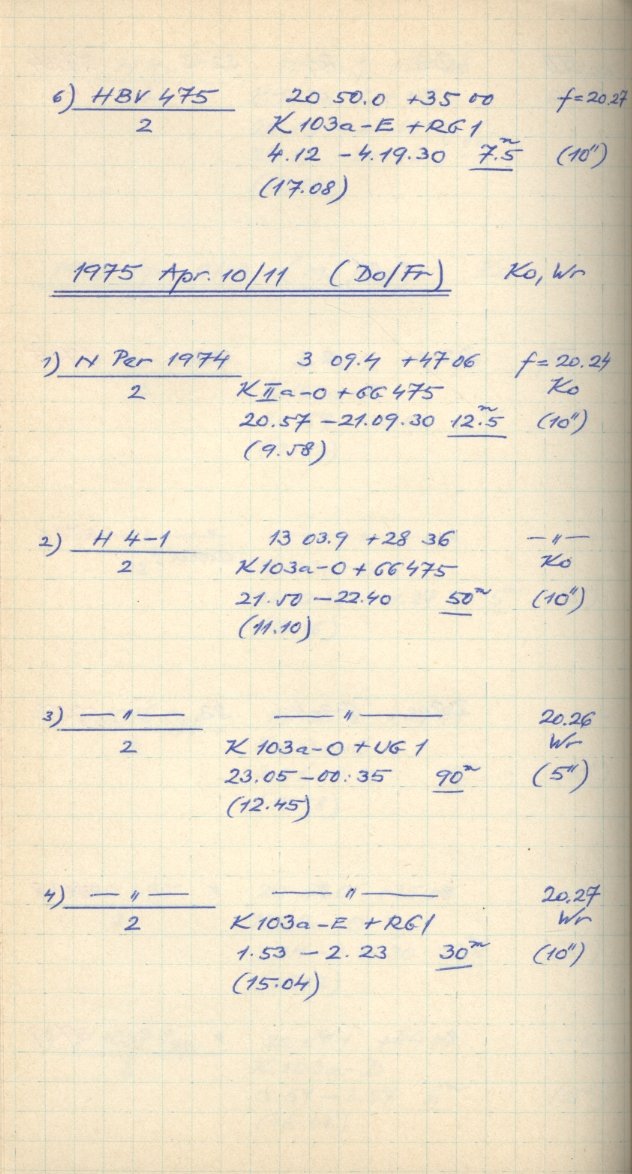 6) HBV 475 20 50.0 +35 00 f=20.27
2 K103a-E +RG1
4.12 – 4.19.30 7.5ᵐ (10")
(17.08)
1975 Apr. 10/11 (Do/Fr) Ko, Wr
1) N Per 1974 3 09.4 +47 06 f=20.24
2 KIIa-O +GG475 Ko
20.57 – 21.09.30 12.5ᵐ (10")
(9.58)
2) H 4-1 13 03.9 +28 36 —"—
2 K103a-O +GG475 Ko
21.50 – 22.40 50ᵐ (10")
(11.10)
3) —"— —"— 20.26
2 K103a-O +UG1 Wr
23.05 – 00.35 90ᵐ (5")
(12.45)
4) —"— —"— 20.27
2 K103a-E +RG1 Wr
1.53 – 2.23 30ᵐ (10")
(15.04)